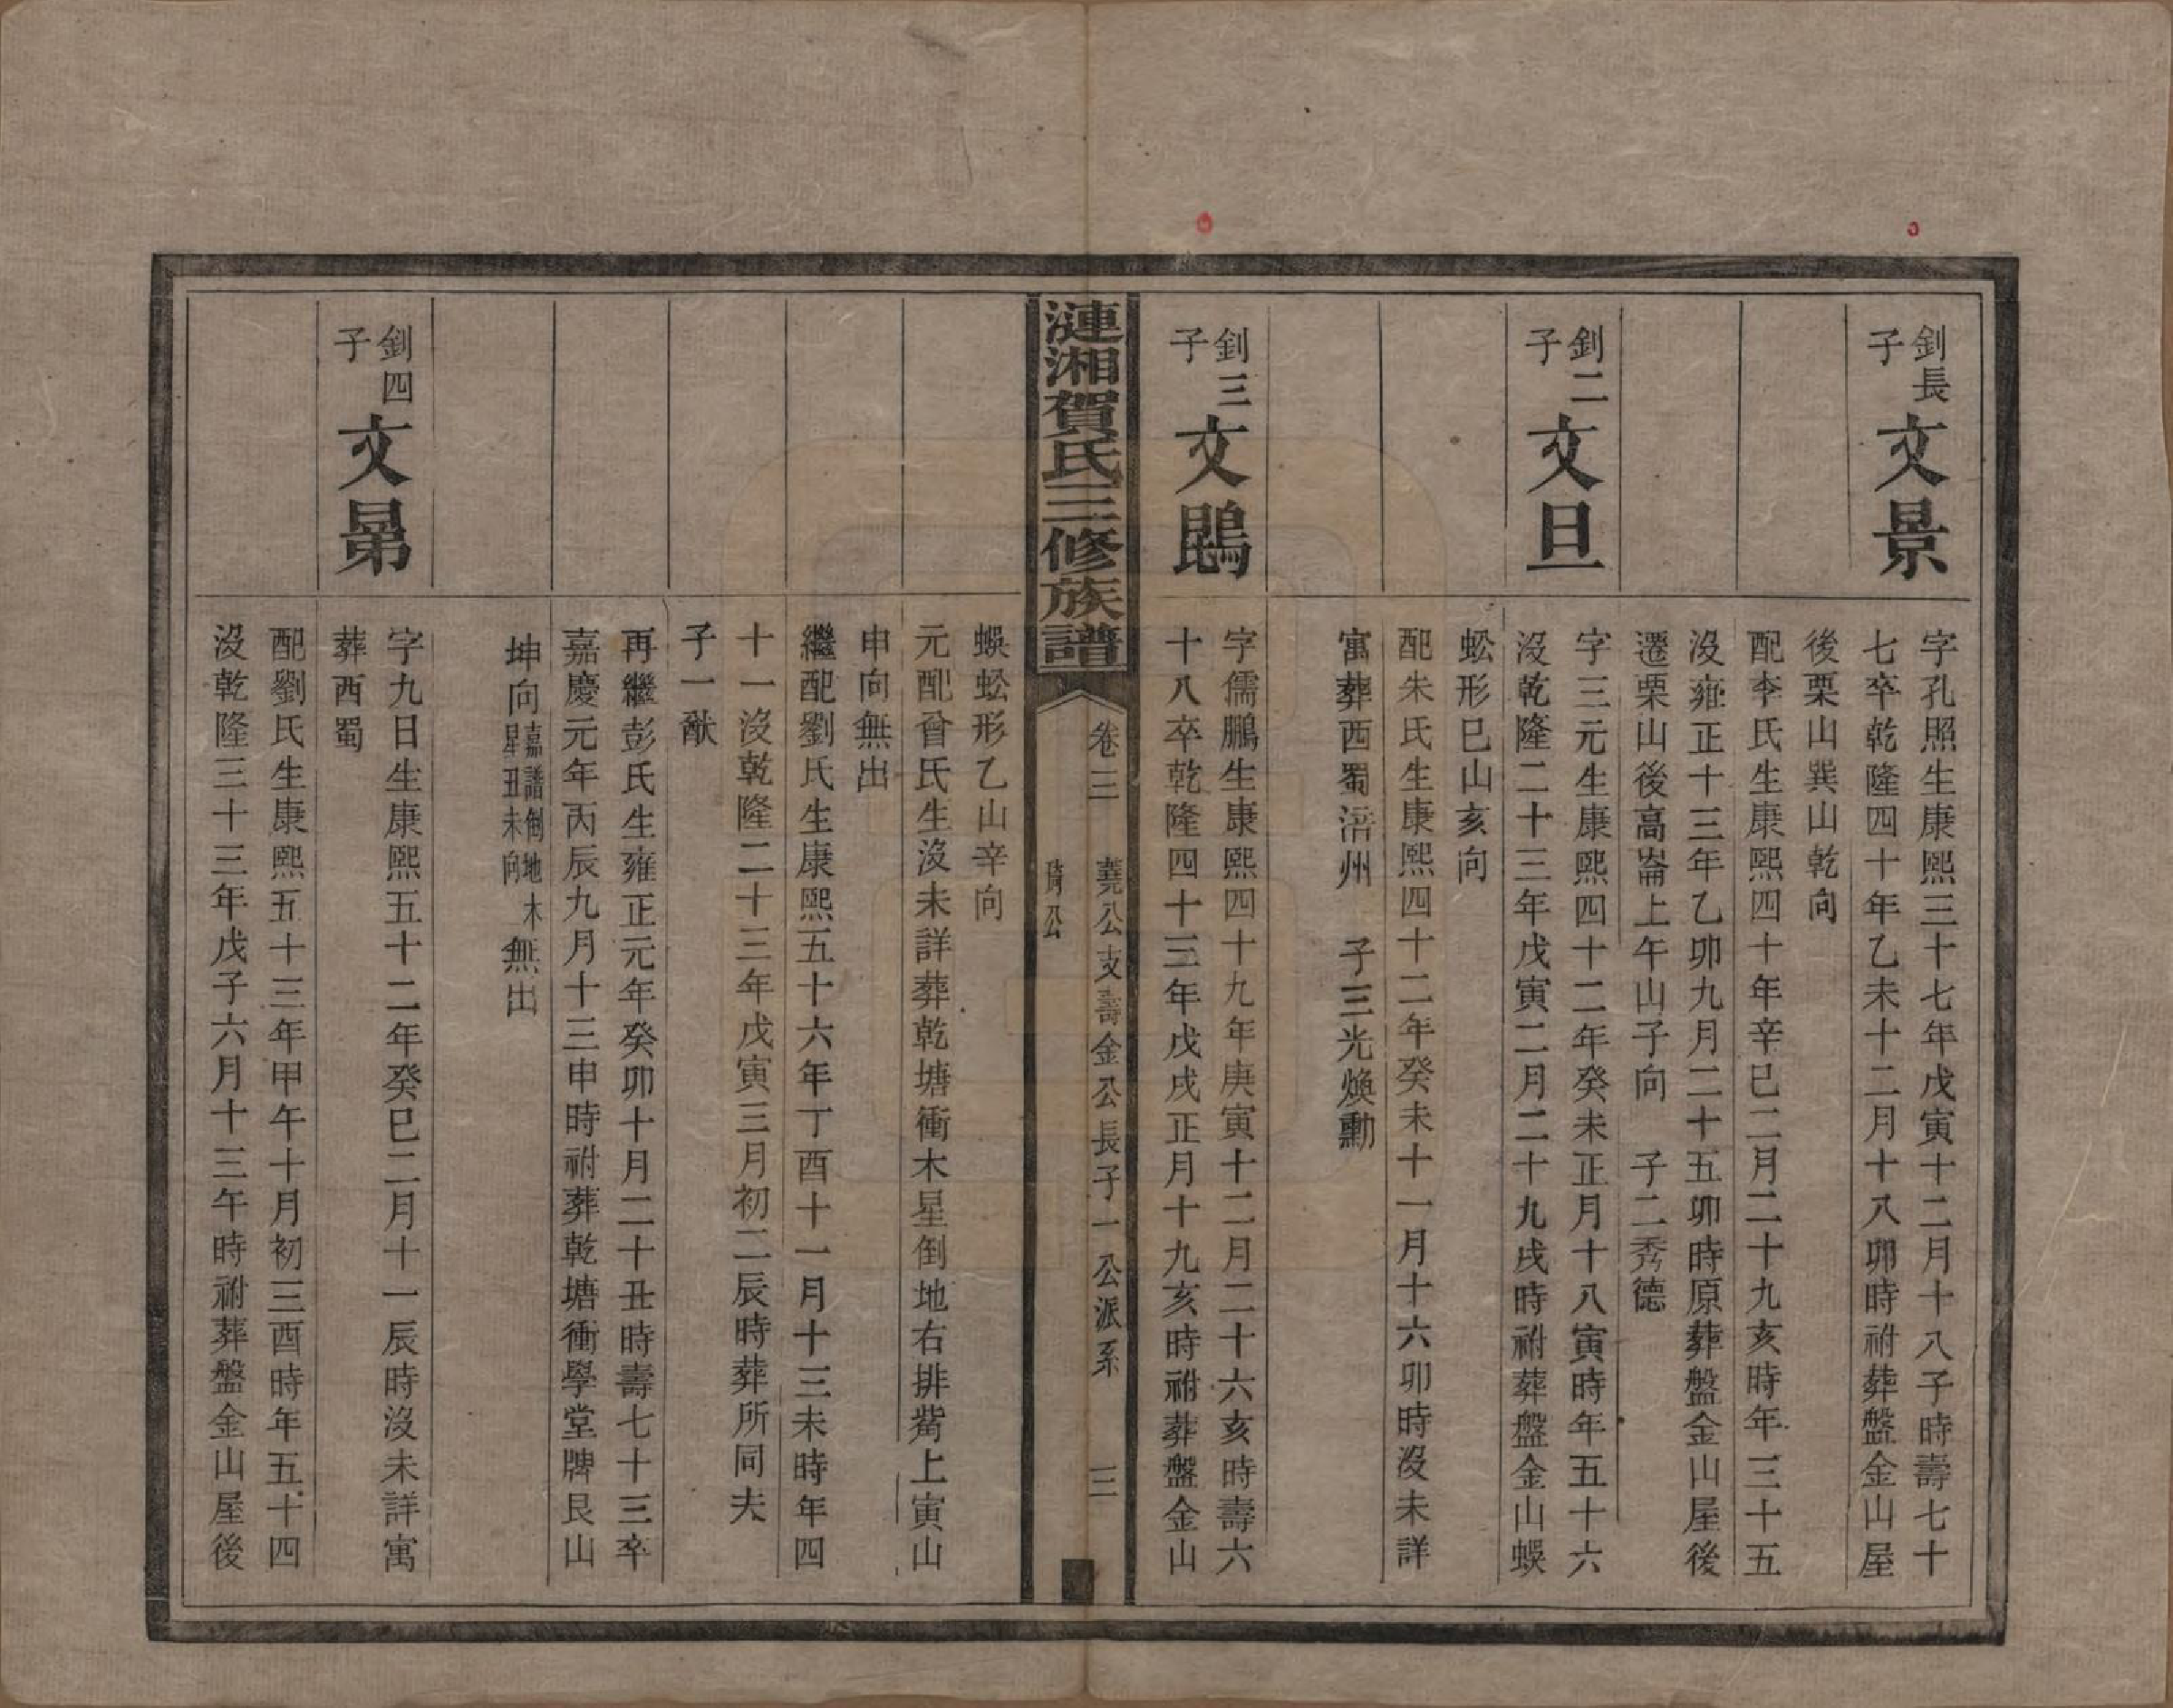 釗長子
文景
字孔照生康熙三十七年戊寅十二月十八子時壽七十
七卒乾隆四十年乙未十二月十八卯時祔葬盤金山屋
後栗山巽山乾向
配李氏生康熙四十年辛巳二月二十九亥時年三十五
沒雍正十三年乙卯九月二十五卯時原葬盤金山屋後
遷栗山後高崙上午山子向　子二秀德
釗二子
文旦
字三元生康熙四十二年癸未正月十八寅時年五十六
沒乾隆二十三年戊寅二月二十九戌時祔葬盤金山蜈
蚣形巳山亥向
配朱氏生康熙四十二年癸未十一月十六卯時沒未詳
寓葬西蜀涪州　子三光煥勳
釗三子
文鵾
字儒鵬生康熙四十九年庚寅十二月二十六亥時壽六
十八卒乾隆四十三年戊戌正月十九亥時祔葬盤金山
漣湘賀氏三修族譜
卷三
蕘公支壽金公長子一公派系
琦公
三
蜈蚣形乙山辛向
元配曾氏生沒未詳葬乾塘衝木星倒地右排觜上寅山
申向無出
繼配劉氏生康熙五十六年丁酉十一月十三未時年四
十一沒乾隆二十三年戊寅三月初二辰時葬所同夫
子一猷
再繼彭氏生雍正元年癸卯十月二十丑時壽七十三卒
嘉慶元年丙辰九月十三申時祔葬乾塘衝學堂牌艮山
坤向嘉譜倒地木星丑未向無出
釗四子
文㫕
字九日生康熙五十二年癸巳二月十一辰時沒未詳寓
葬西蜀
配劉氏生康熙五十三年甲午十月初三酉時年五十四
沒乾隆三十三年戊子六月十三午時祔葬盤金山屋後